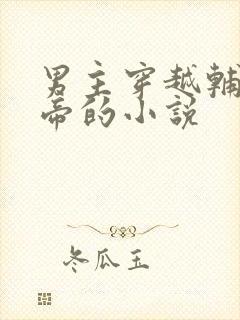 男主穿越輔
帝的小說
冬瓜玉